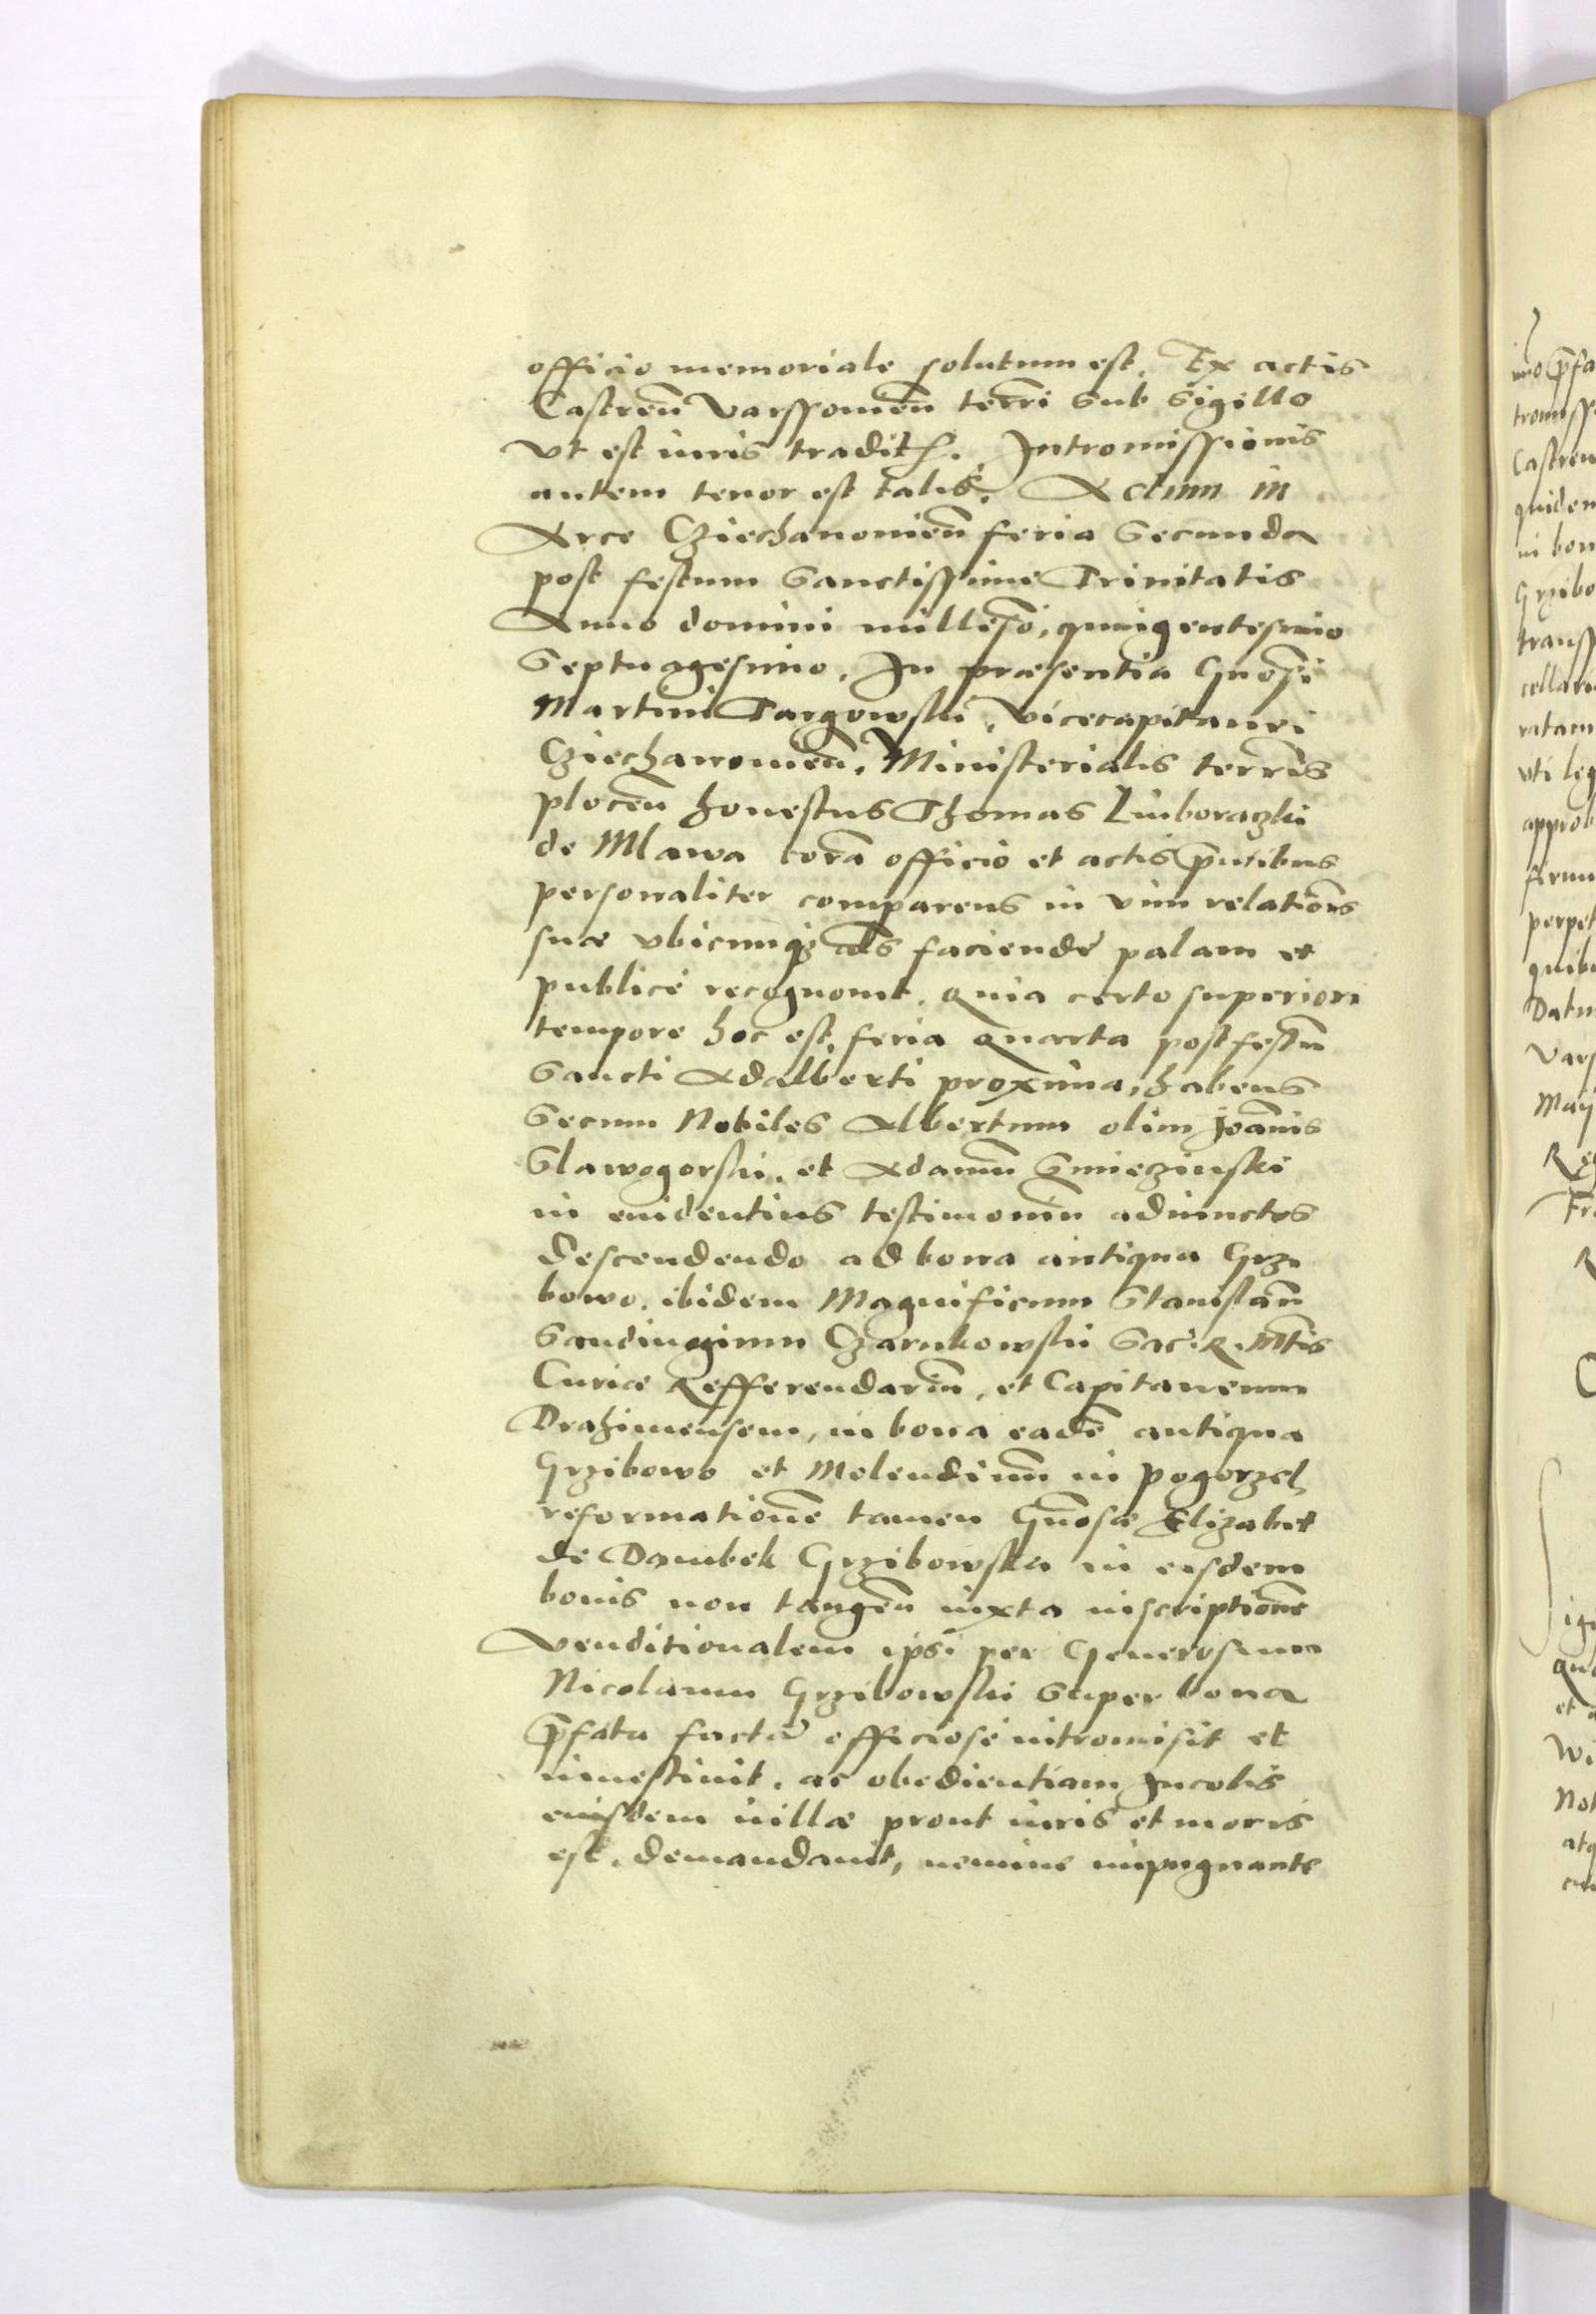 officio memoriale solutum est. Ex actis
Castren̄ Varssouien̄ terr̄i sub sigillo
vt est iuris tradit. Intromissionis
autem tenor est talis. Actum in
Arce Cziechanouien̄ feria secunda
post festum Sanctissime Trinitatis
Anno domini millesō, quingentesimo
Septuagesimo. In præsentia Gnōsi
Martini Targowski, Vicecapitanei
Cziechanouien̄, Ministerialis terrn̄s
plocen̄ honestus Thomas Luiboraczki
de Mlawa corā officio et actis p̄ntibus
personaliter comparens in vim relationīs
suæ vbicunq3 faciende palam et
publicé recognouit. Quia certo superiori
tempore hoc est, feria quarta post festū
Sancti Adalberti proxima, habens
Secum Nobiles Albertum olim Joānnis
Slawogorski, et Adamū Gmieczinski
in euidentius testimoniū adiunctos
descendendo ad bona antiqua Grzi
bowo. ibidem Magnificum Stanislaū
Sandiuogium Czarnkowski Sac. R. Mtīs
Curiæ Refferendariū, et Capitaneum
Drahimensem, in bona eadē antiqua
Grzibowo et Molendinū in pogorzel
reformationē tamen Gnōsæ Elizabet
de Dambek Grzibowska in eisdem
bonis non tangen̄ iuxta inscriptionē
Venditionalem ipsi per Generosum
Nicolaum Grzibowski super bona
p̄fata factā officiosé intromisit et
inuestiuit. ac obedientiam Jncolis
eiusdem uillæ prout iuris et moris
est, demandauit, nemine impugnante